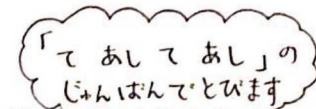 「て あし て あし」の
じゅんばんでとびます